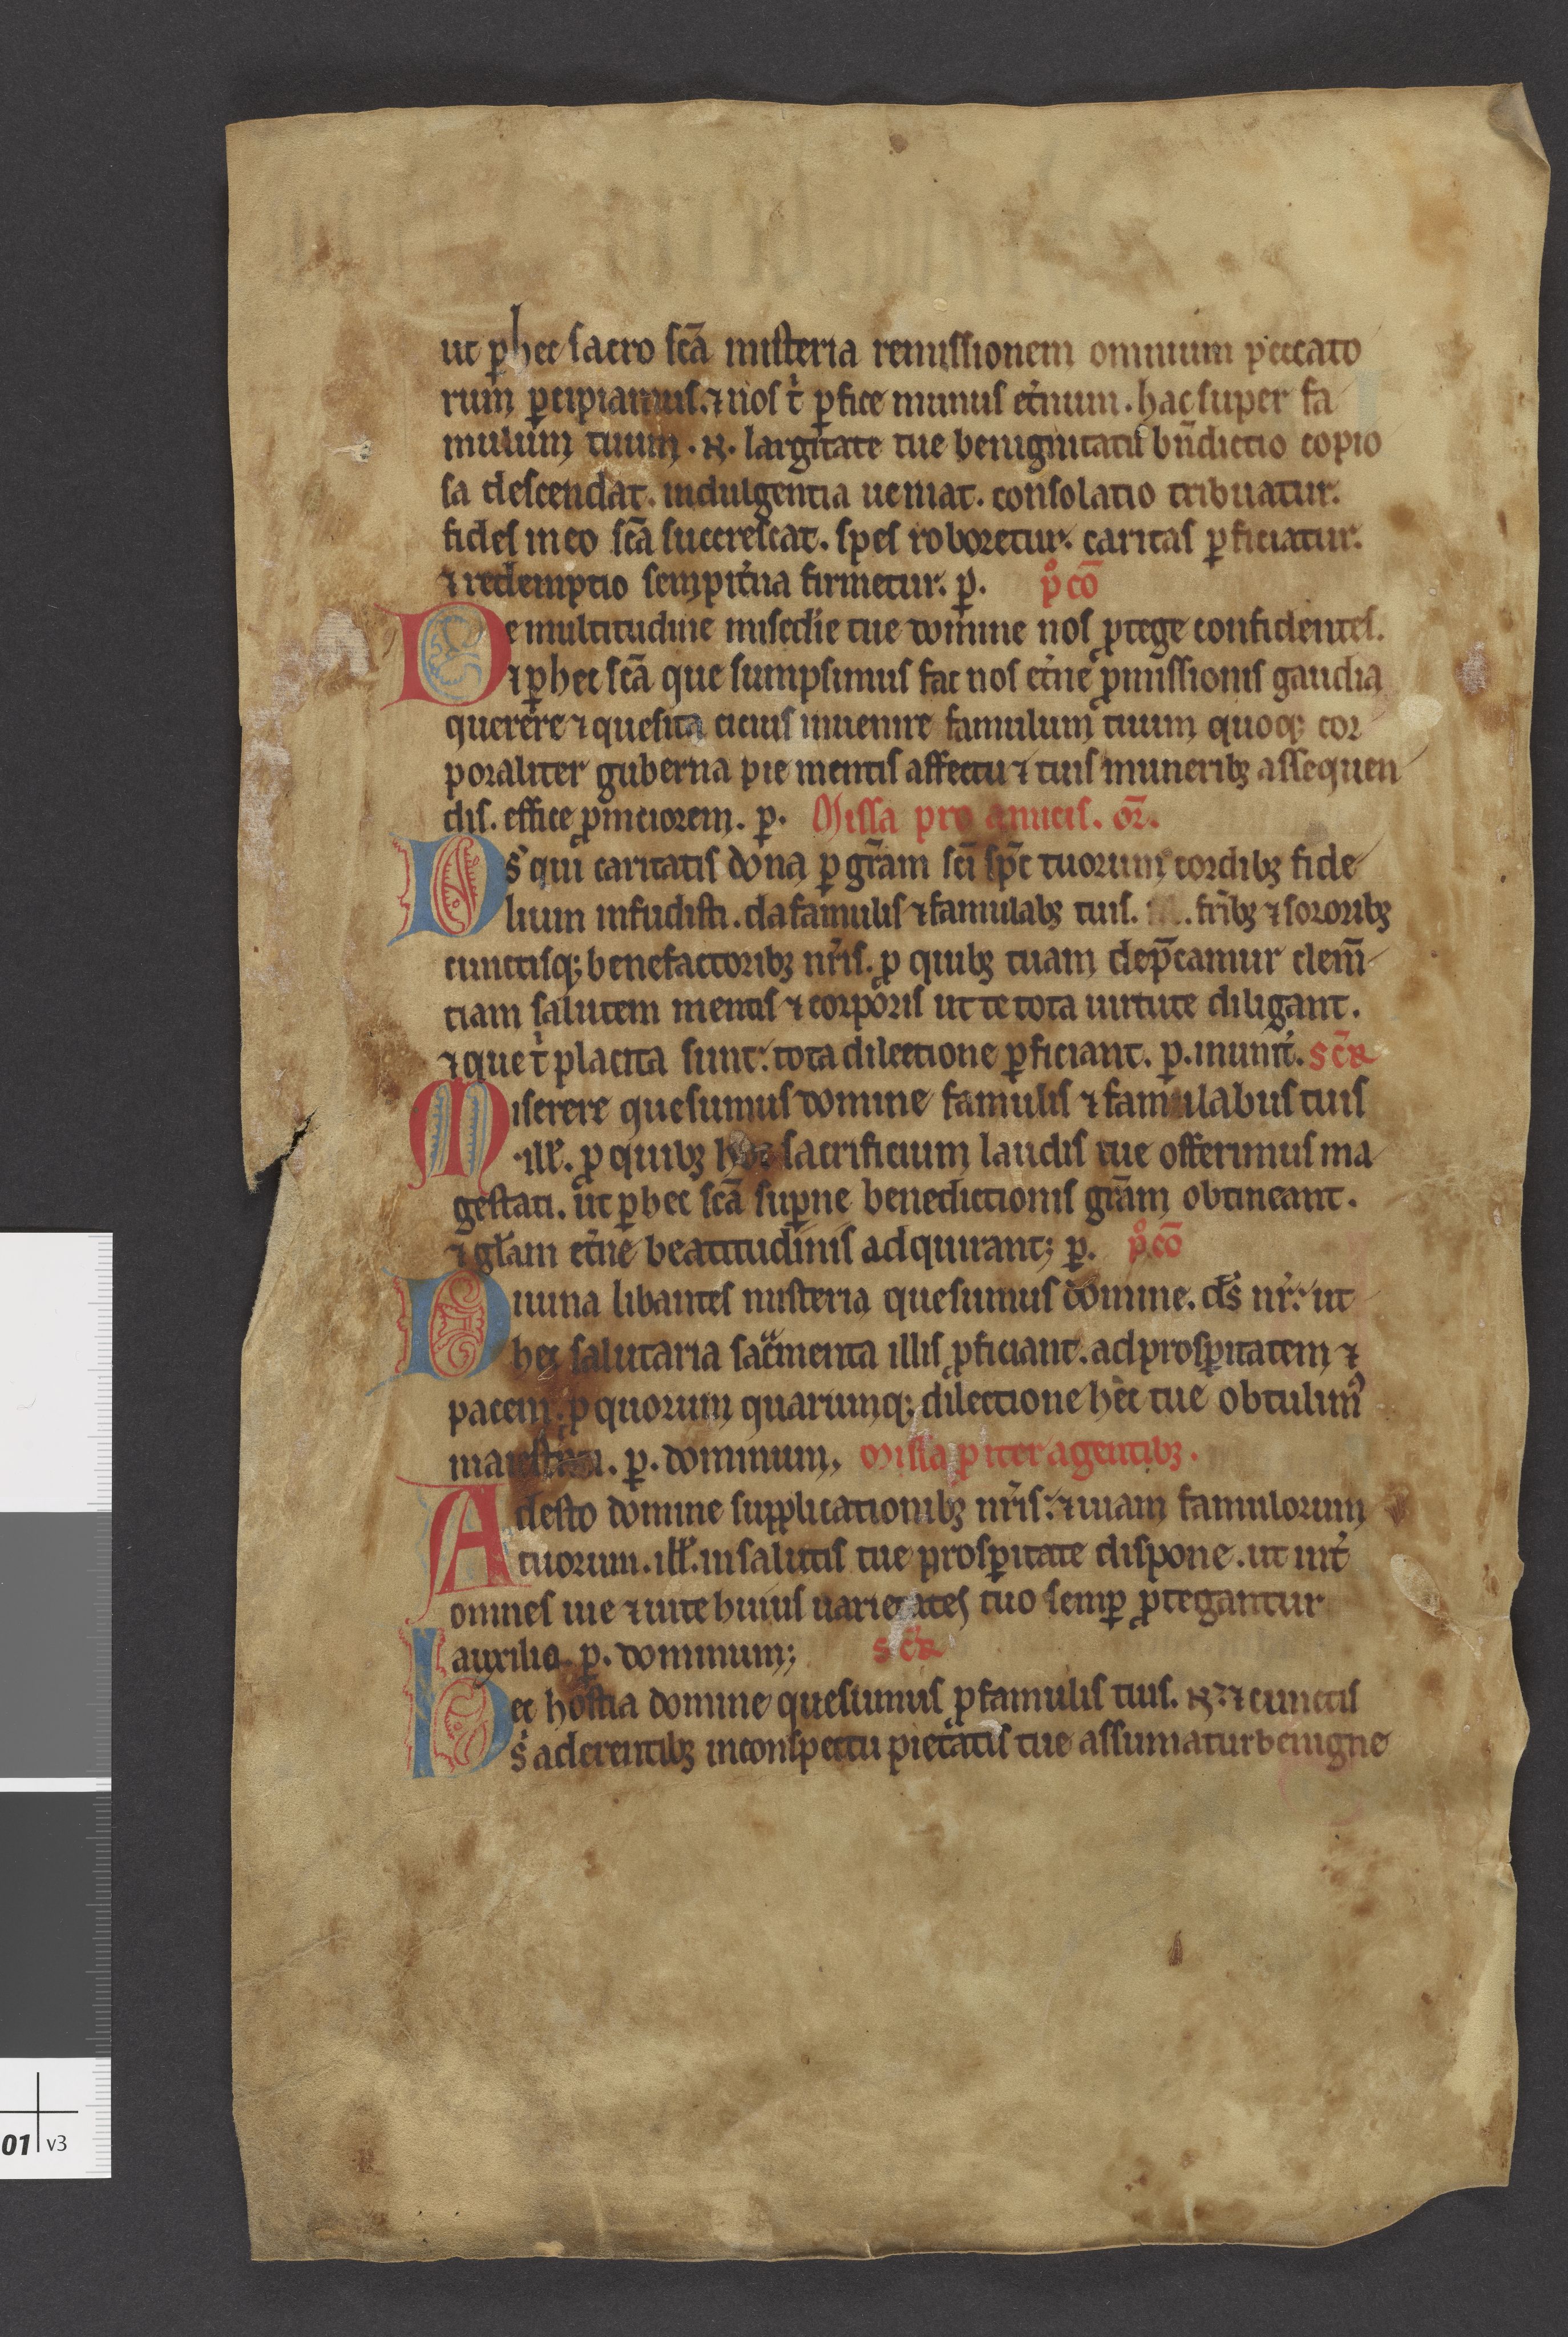 ut ꝑ hec sacro scā misteria remissionem omnium peccato
rum ꝑcipiamus. ⁊ nos t̉ ꝑfice munus et̉num. hac super fa
mulum tuum. N. largitate tue benignitatis bn̄dictio copio
sa descendat. indulgentia ueniat. consolatio tribuatur.
fides in eo scā succrescat. spes roboretur. caritas ꝑficiatur.
⁊ redemptio sempit̉na firmetur. ꝑ. p̊ cō
De multitudine misedīe tue domine nos ꝓtege confidentes.
⁊ ꝑ hec scā que sumpsimus fac nos et̉ne ꝓmissionis gaudia
querere ⁊ quesita cicius inuenire famulum tuum quoqꝫ cor
poraliter guberna pie mentis affectu ⁊ tuis muneribꝫ assequen
dis. effice ꝓmciorem. ꝑ. Missa pro amicis. or̄.
Ds̄ qui caritatis dona ꝑ gr̄am scī sp̄c tuorum cordibꝫ fide
lium infudisti. da famulis ⁊ famulabꝫ tuis. frībꝫ ⁊ sororibꝫ
cunctisqꝫ benefactoribꝫ nr̄is. ꝓ quibꝫ tuam dep̄camur clem̄
tiam salutem mentis ⁊ corporis ut te tota uirtute diligant.
⁊ que t̉ placita sunt. tota dilectione ꝑficiant. ꝑ. in unit̉. sc̄R
Miserere quesumus domine famulis ⁊ famulabus tuis
.ill̄. ꝓ quibꝫ hoc sacrificium laudis tue offerimus ma
gestati. ut ꝑ hec scā suꝑne benedictionis gr̄am obtineant.
⁊ gl̄am et̉ne beatitudinis adquirant; ꝑ. p̊. cō
Diuina libantes misteria quesumus domine. ds̄ nr̄. ut
hec salutaria sac̉menta illis ꝓficiant. ad prosꝑitatem ⁊
pacem. ꝓ quorum quarumqꝫ dilectione hec tue obtulim᷒
maiestati. ꝑ. dominum, Missa ꝓ iter agentibꝫ.
Adesto domine supplicationibꝫ nr̄is. ⁊ uiam famulorum
tuorum. ill̄. in salutis tue prosꝑitate dispone. ut int̉
omnes uie ⁊ uite huius uarietates tuo semꝑ ꝓtegantur
auxilio. ꝑ. dominum; sc̄R
Hec hostia domine quesumus ꝓ famulis tuis. N. ⁊ cunctis
s̉ aderentibꝫ in conspectu pietatis tue assumatur benigne
01 v3